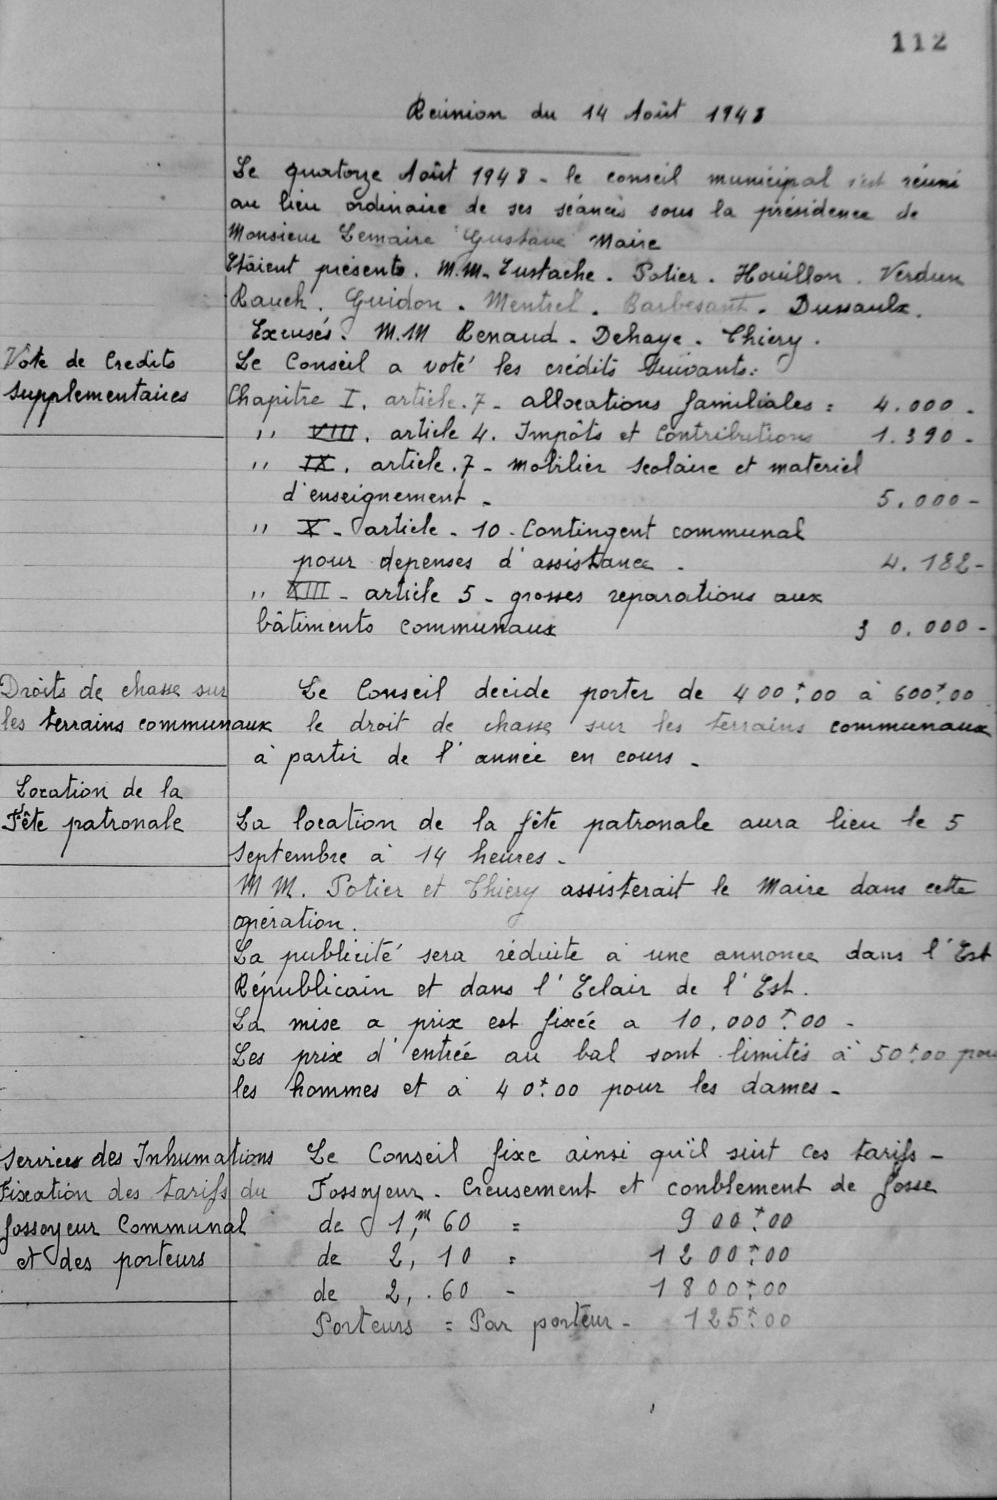 112
Réunion du 14 Août 1948
Le quatorze Août 1948 - le conseil municipal s'est réuni
au lieu ordinaire de ses séances sous la présidence de
Monsieur Lemaire Gustave Maire
Etaient présents. M.M. Eustache. Potier. Houillon. Verdun
Rauch. Guidon. Mentrel. Barbesant. Dussaulx.
Excusés. M.M Renaud. Dehaye. Thiery.
Vote de Credits
supplementaires
Le Conseil a voté les crédits suivants:
Chapitre I. article.7 - allocations familiales = 4.000 -
,, VIII. article 4. Impôts et Contributions 1.390 -
,, IX. article.7 - mobilier scolaire et materiel
d'enseignement - 5.000 -
,, X - article - 10 - Contingent communal
pour depenses d'assistance - 4.182 -
,, XIII - article 5 - grosses reparations aux
bâtiments communaux 30.000 -
Droits de chasse sur
les terrains communaux
Le Conseil decide porter de 400f.00 à 600f.00
le droit de chasse sur les terrains communaux
à partir de l'année en cours -
Location de la
Fête patronale
La location de la fête patronale aura lieu le 5
Septembre à 14 heures -
M M. Potier et Thiery assisterait le Maire dans cette
opération.
La publicité sera réduite à une annonce dans l'Est
Républicain et dans l'Eclair de l'Est.
La mise a prix est fixée a 10.000f.00 -
Les prix d'entrée au bal sont limités à 50f.00 pour
les hommes et à 40f.00 pour les dames -
Services des Inhumations
Fixation des tarifs du
fossoyeur Communal
et des porteurs
Le Conseil fixe ainsi qu'il suit ces tarifs -
Fossoyeur. Creusement et conblement de fosse
de 1,m 60 = 900f.00
de 2,10 = 1200f.00
de 2,.60 - 1800f.00
Porteurs = Par porteur - 125f.00